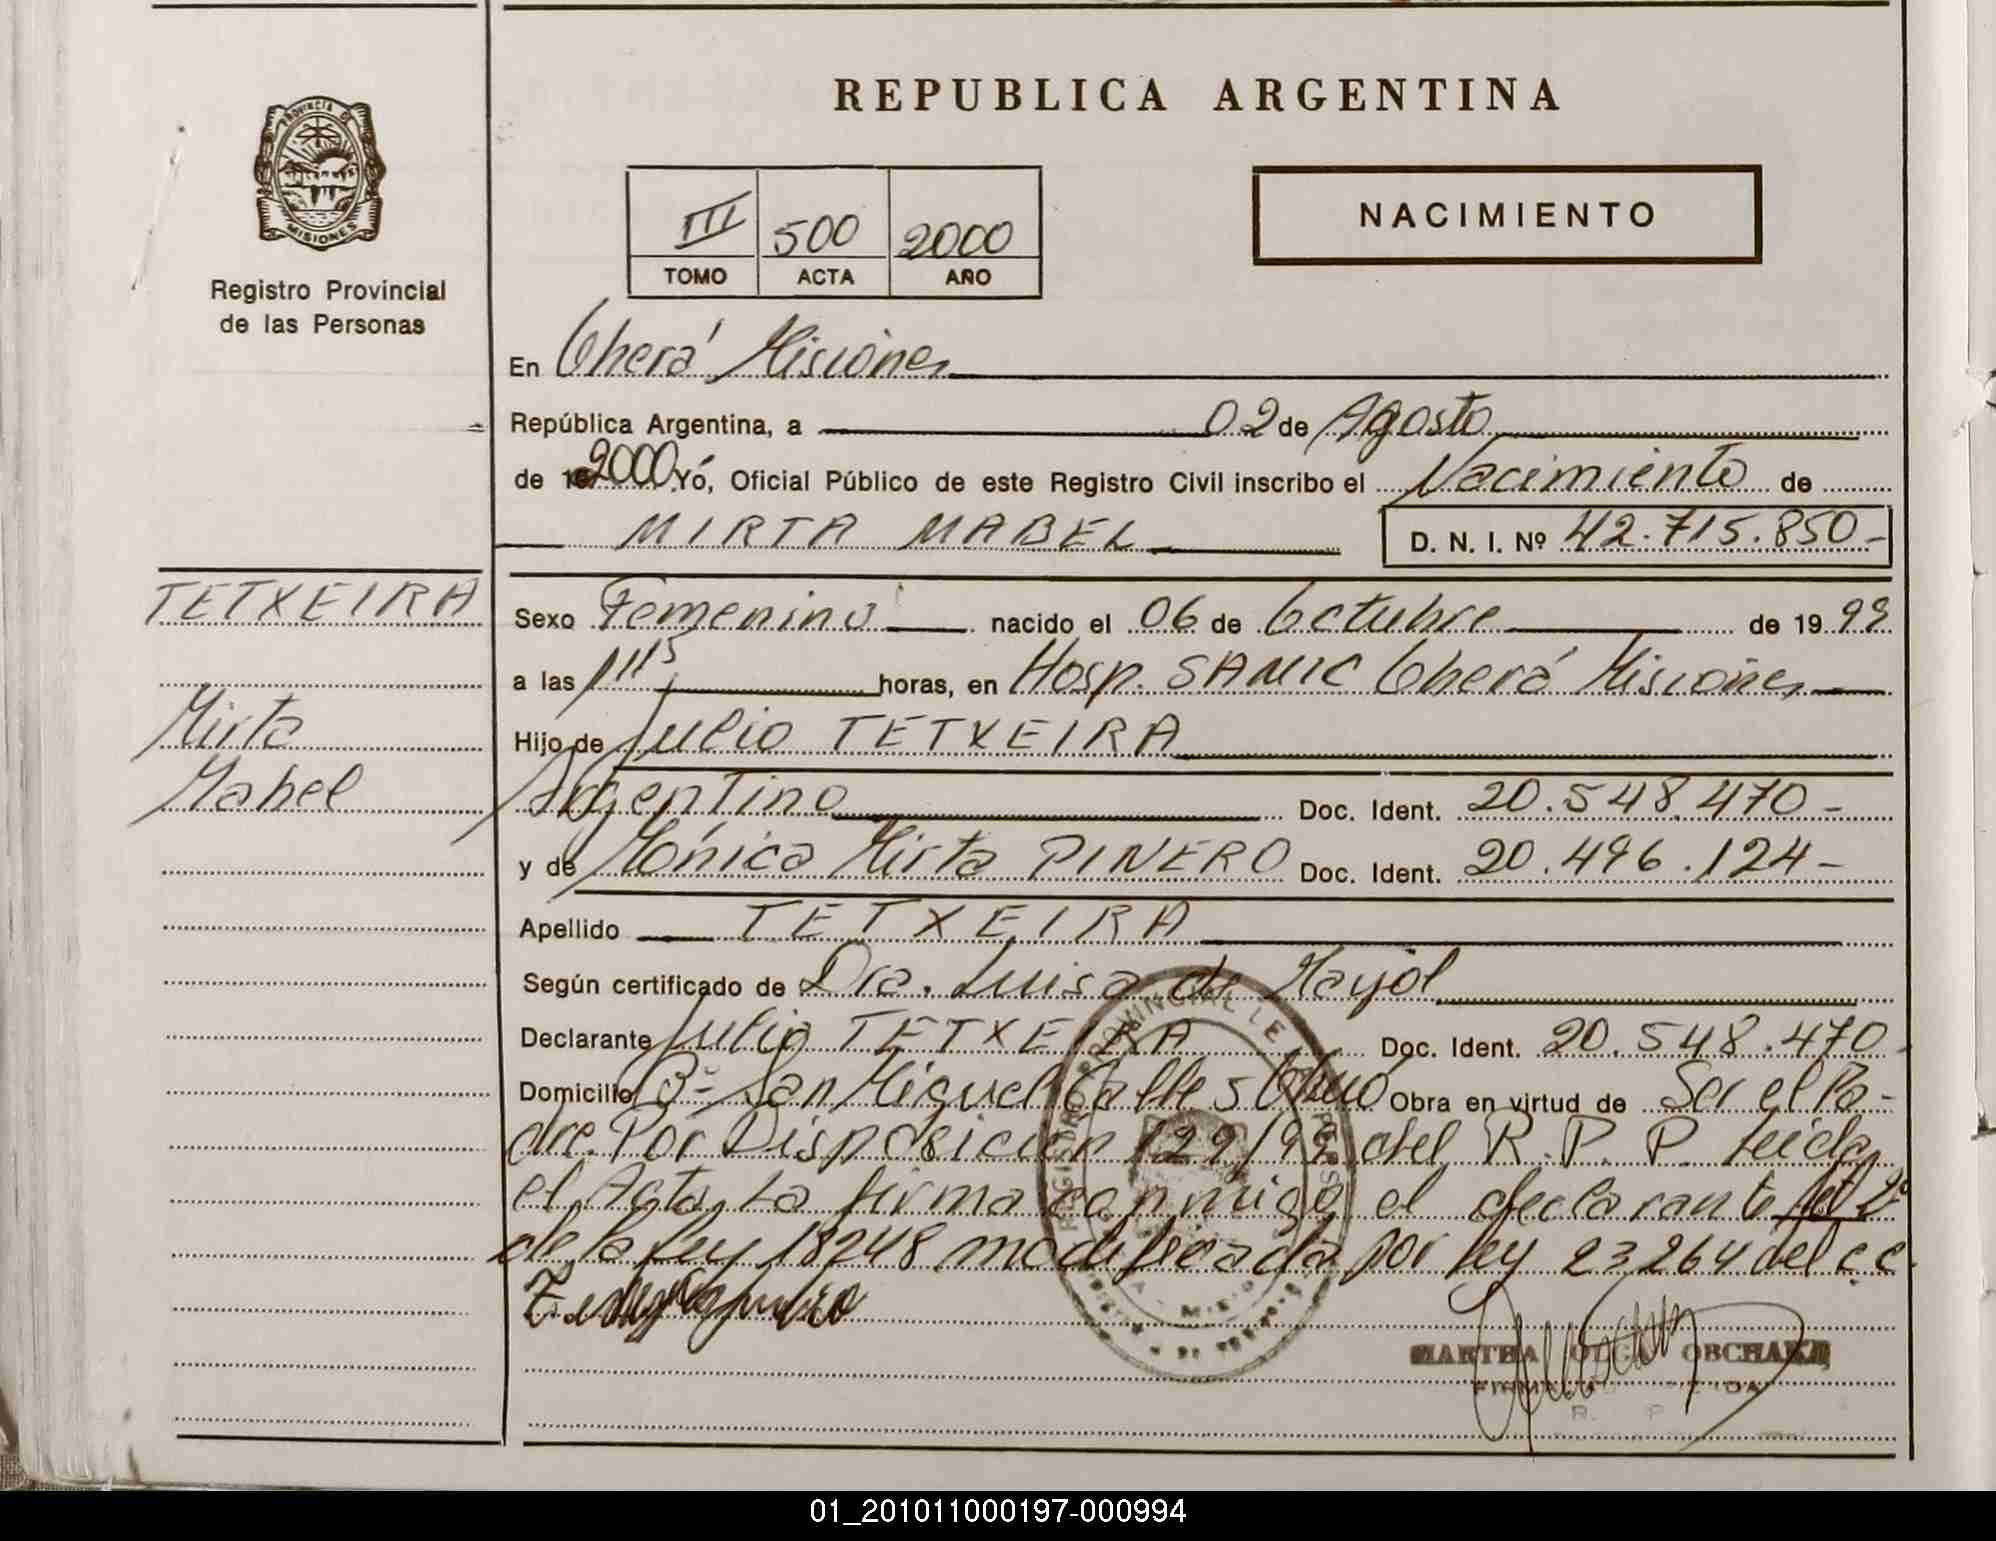 PROVINCIA DE
MISIONES
Registro Provincial
de las Personas
REPUBLICA ARGENTINA
III 500 2000
TOMO ACTA AÑO
NACIMIENTO
En Oberá Misiones
República Argentina, a 02 de Agosto
de 2000 Yó, Oficial Público de este Registro Civil inscribo el Nacimiento de
MIRTA MABEL D. N. I. Nº 42.715.850-
TETXEIRA
Mirta
Mabel
Sexo Femenino nacido el 06 de Octubre de 1999
a las 11 15 horas, en Hosp. SAMIC Oberá Misiones
Hijo de Julio TETXEIRA
Argentino Doc. Ident. 20.548.470-
y de Mónica Mirta PINERO Doc. Ident. 20.496.124-
Apellido TETXEIRA
Según certificado de Dra. Luisa de Mayol
Declarante Julio TETXEIRA Doc. Ident. 20.548.470-
Domicilio Bº San Miguel Calle 5 Obra en virtud de Ser el Pa-
dre. Por Disposición 129/99 del R.P.P. Leida
el Acta La firma conmigo el declarante Art 2º
de la Ley 18248 modificada por ley 23264 del c.c.
MARTHA OLGA OBCHAKA
R. P.
01_201011000197-000994